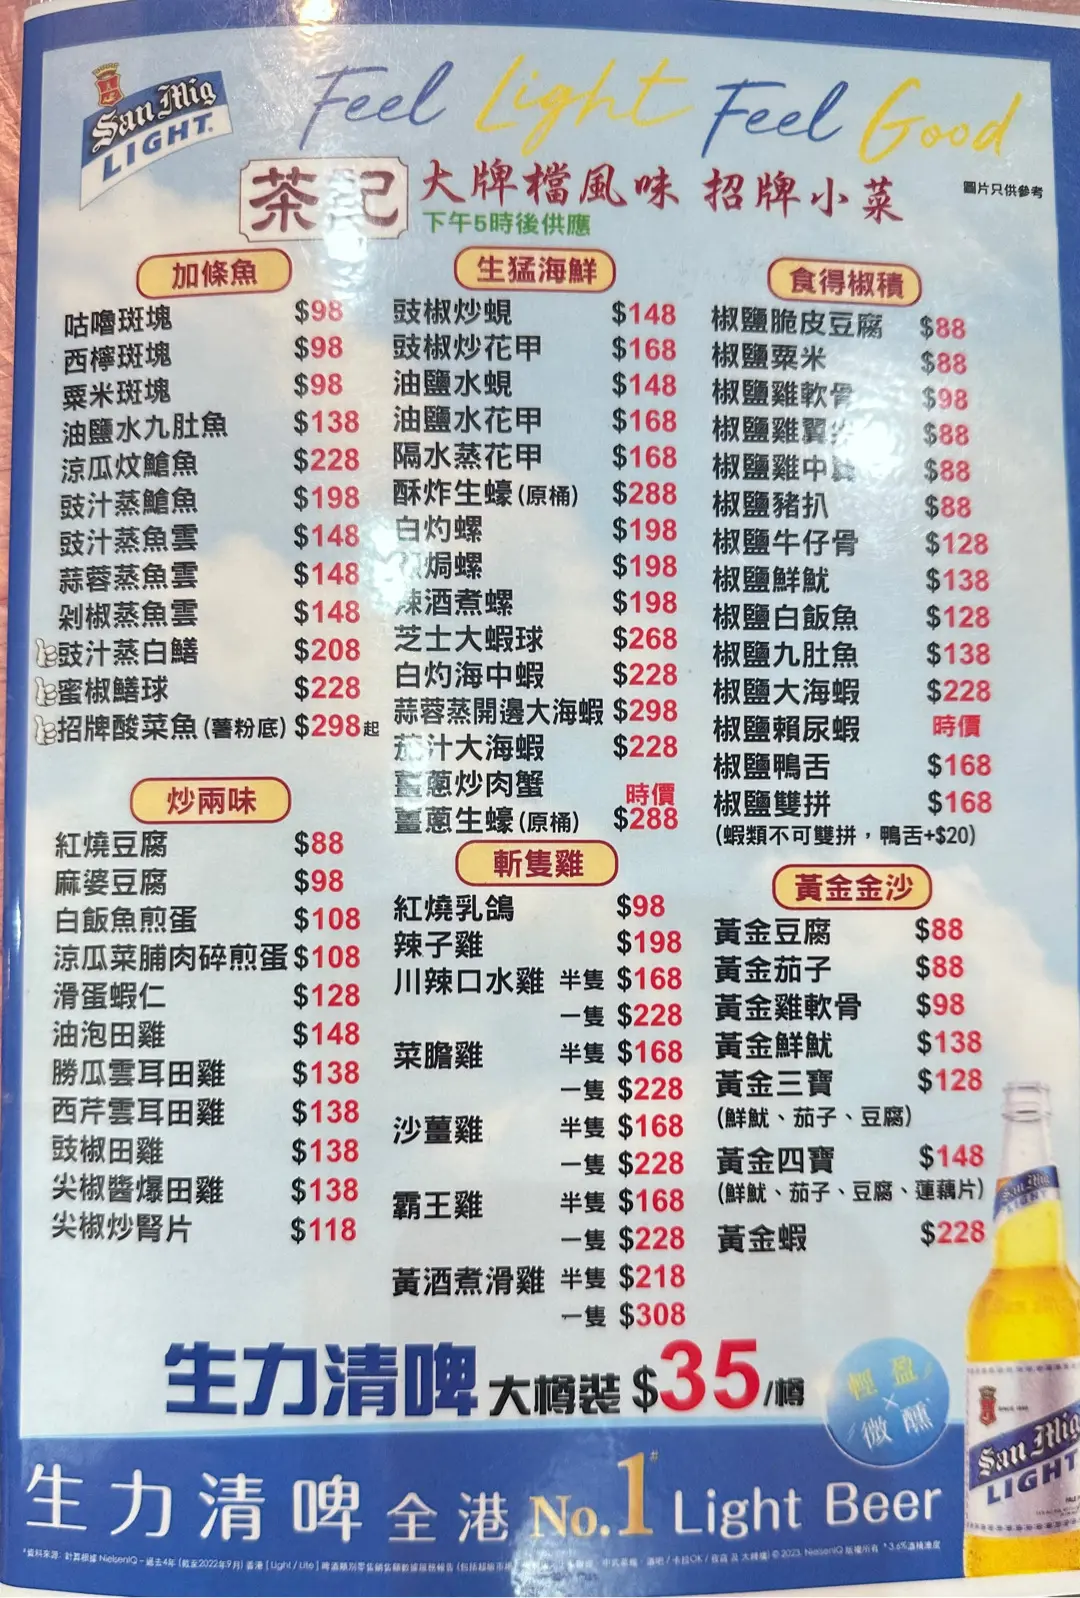 San Mig
LIGHT
Feel Light Feel Good
茶記 大牌檔風味 招牌小菜
下午5時後供應
圖片只供參考
加條魚
咕嚕斑塊 $98
西檸斑塊 $98
粟米斑塊 $98
油鹽水九肚魚 $138
涼瓜炆鱠魚 $228
豉汁蒸鱠魚 $198
豉汁蒸魚雲 $148
蒜蓉蒸魚雲 $148
剁椒蒸魚雲 $148
豉汁蒸白鱔 $208
蜜椒鱔球 $228
招牌酸菜魚(薯粉底) $298起
炒兩味
紅燒豆腐 $88
麻婆豆腐 $98
白飯魚煎蛋 $108
涼瓜菜脯肉碎煎蛋 $108
滑蛋蝦仁 $128
油泡田雞 $148
勝瓜雲耳田雞 $138
西芹雲耳田雞 $138
豉椒田雞 $138
尖椒醬爆田雞 $138
尖椒炒腎片 $118
生猛海鮮
豉椒炒蜆 $148
豉椒炒花甲 $168
油鹽水蜆 $148
油鹽水花甲 $168
隔水蒸花甲 $168
酥炸生蠔(原桶) $288
白灼螺 $198
焗螺 $198
辣酒煮螺 $198
芝士大蝦球 $268
白灼海中蝦 $228
蒜蓉蒸開邊大海蝦 $298
茄汁大海蝦 $228
薑蔥炒肉蟹 時價
薑蔥生蠔(原桶) $288
斬隻雞
紅燒乳鴿 $98
辣子雞 $198
川辣口水雞 半隻 $168
一隻 $228
菜膽雞 半隻 $168
一隻 $228
沙薑雞 半隻 $168
一隻 $228
霸王雞 半隻 $168
一隻 $228
黃酒煮滑雞 半隻 $218
一隻 $308
食得椒積
椒鹽脆皮豆腐 $88
椒鹽粟米 $88
椒鹽雞軟骨 $98
椒鹽雞翼尖 $88
椒鹽雞中翼 $88
椒鹽豬扒 $88
椒鹽牛仔骨 $128
椒鹽鮮魷 $138
椒鹽白飯魚 $128
椒鹽九肚魚 $138
椒鹽大海蝦 $228
椒鹽賴尿蝦 時價
椒鹽鴨舌 $168
椒鹽雙拼 $168
(蝦類不可雙拼，鴨舌+$20)
黃金金沙
黃金豆腐 $88
黃金茄子 $88
黃金雞軟骨 $98
黃金鮮魷 $138
黃金三寶 $128
(鮮魷、茄子、豆腐)
黃金四寶 $148
(鮮魷、茄子、豆腐、蓮藕片)
黃金蝦 $228
生力清啤 大樽裝 $35/樽
輕盈
×
微醺
San Mig
LIGHT
生力清啤 全港 No.1# Light Beer